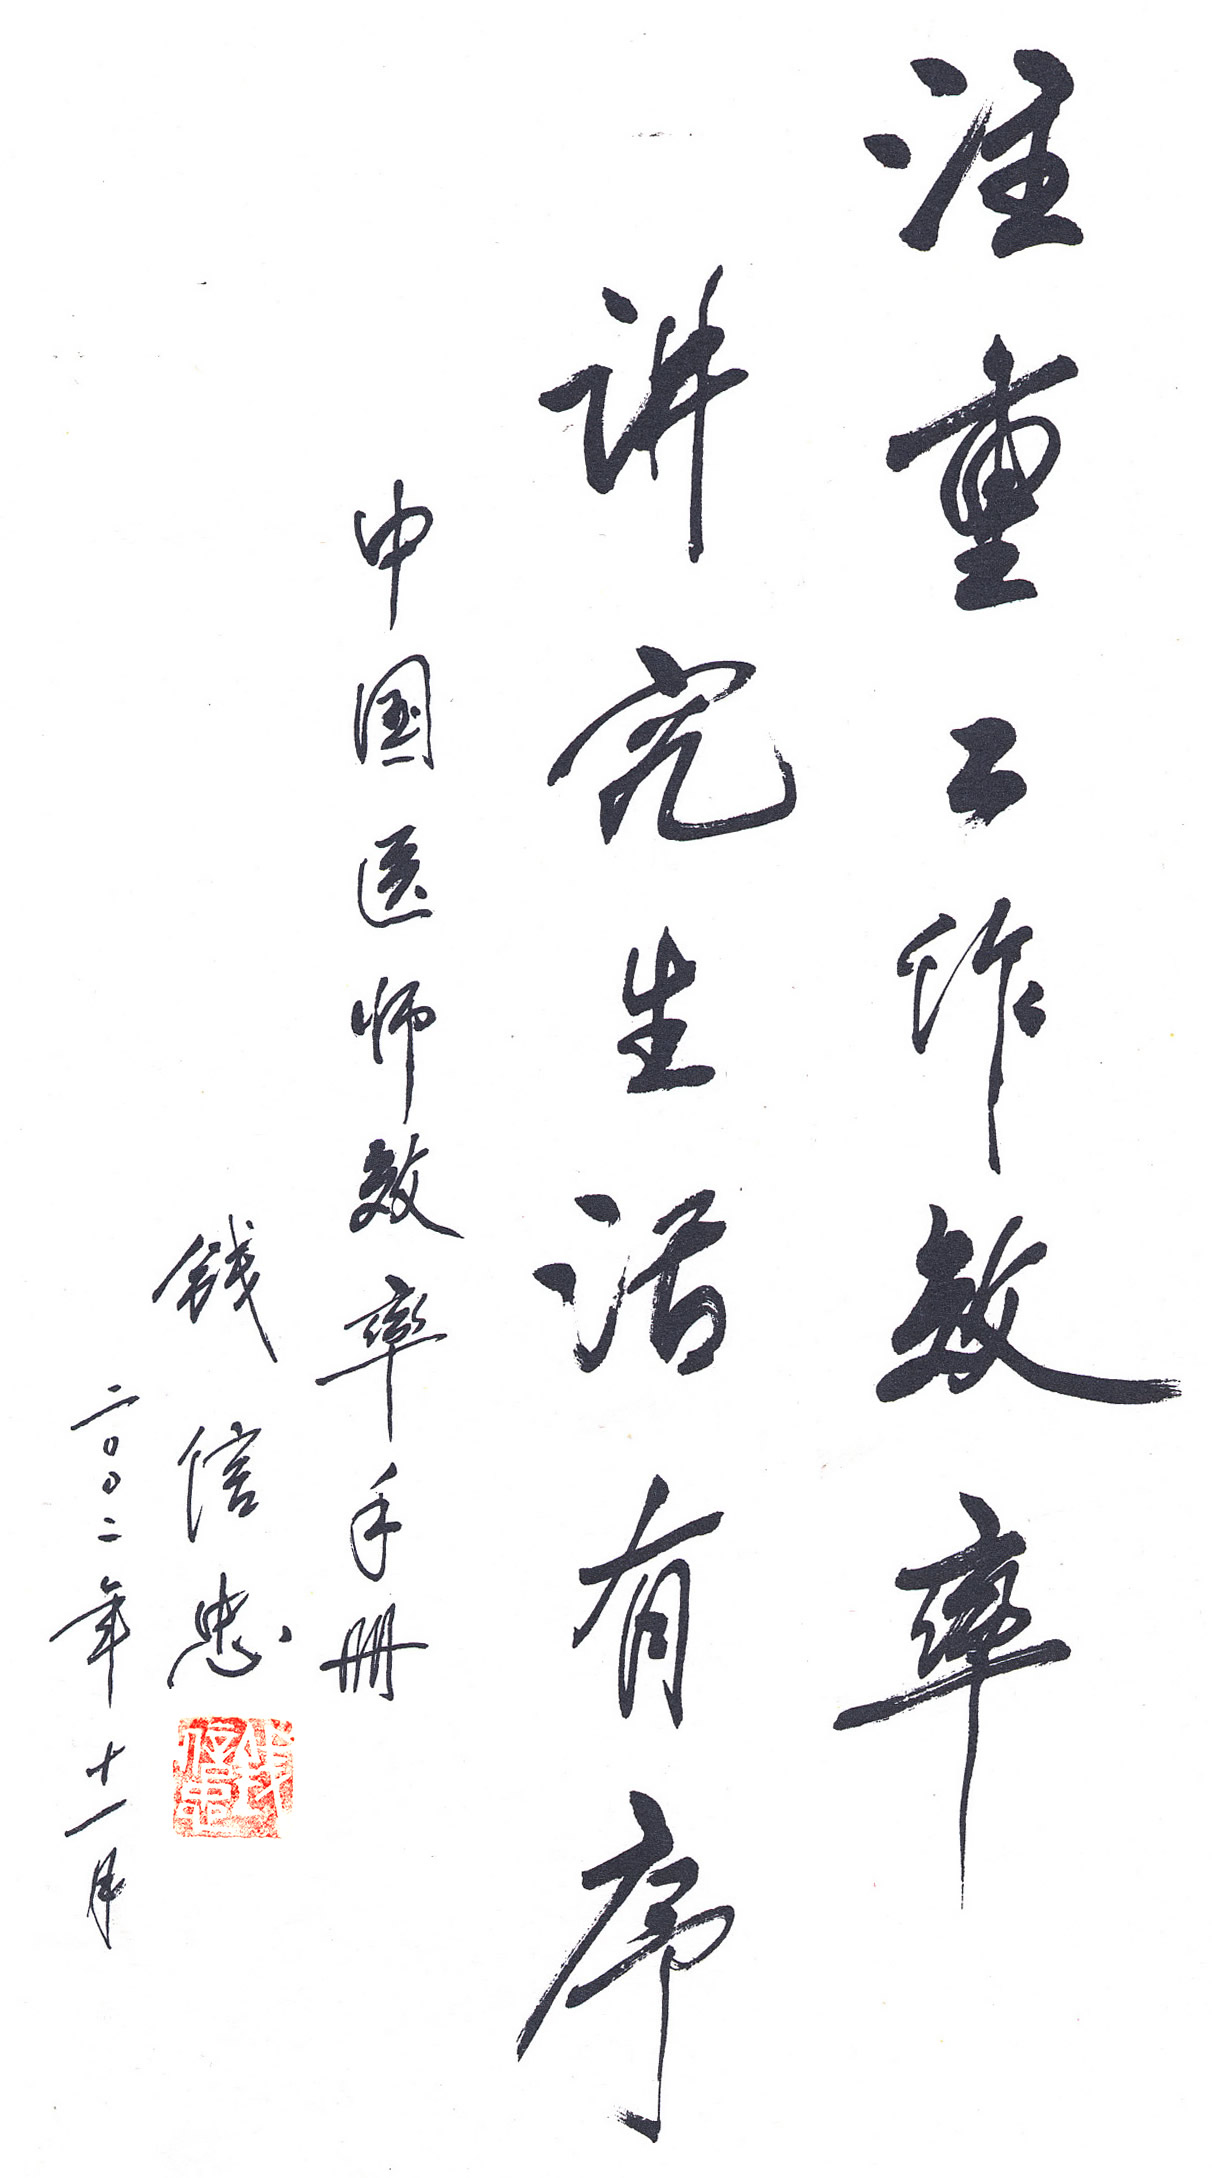 注重工作效率
讲究生活有序
中国医师效率手册
钱信忠
二〇〇二年十一月
钱信忠